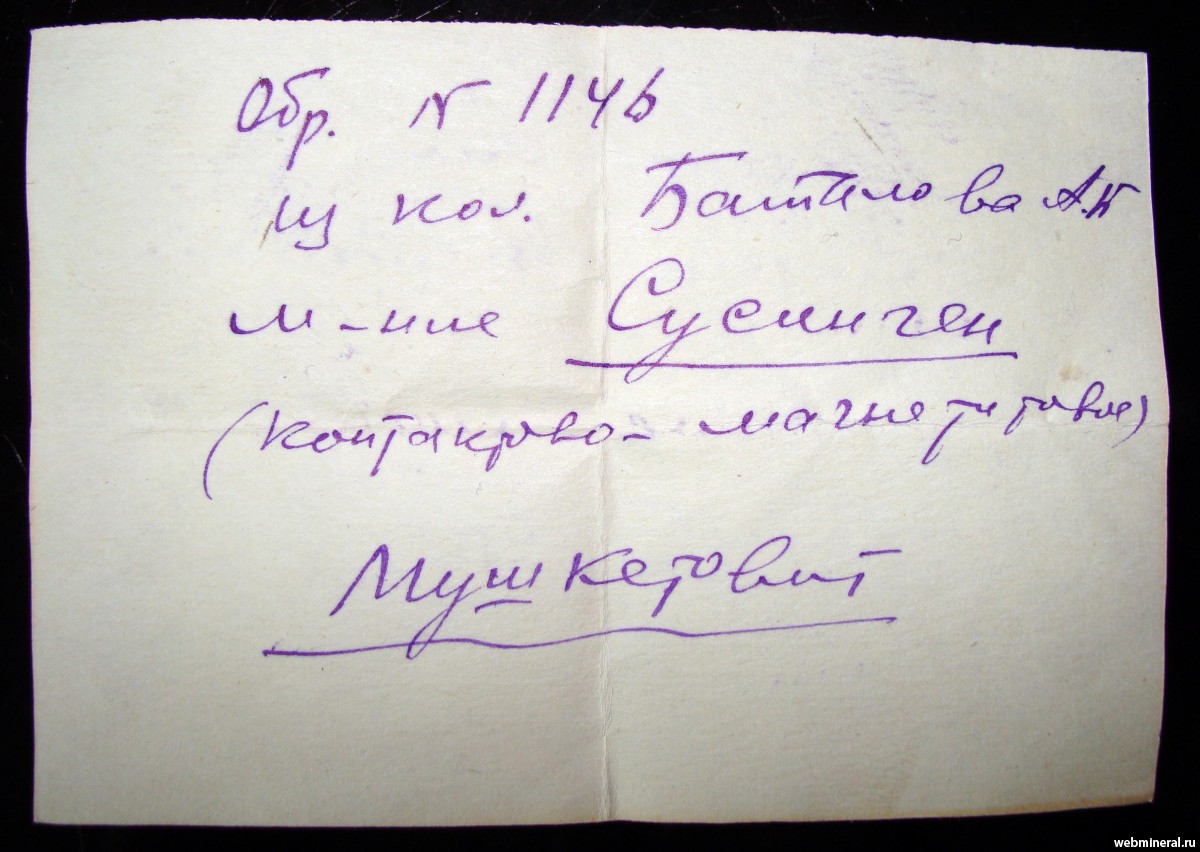 Обр. N 1146
из кол. Батилова А.К
м-ние Сусинген
(контактово- магнетитовое)
Мушкетовит
webmineral.ru